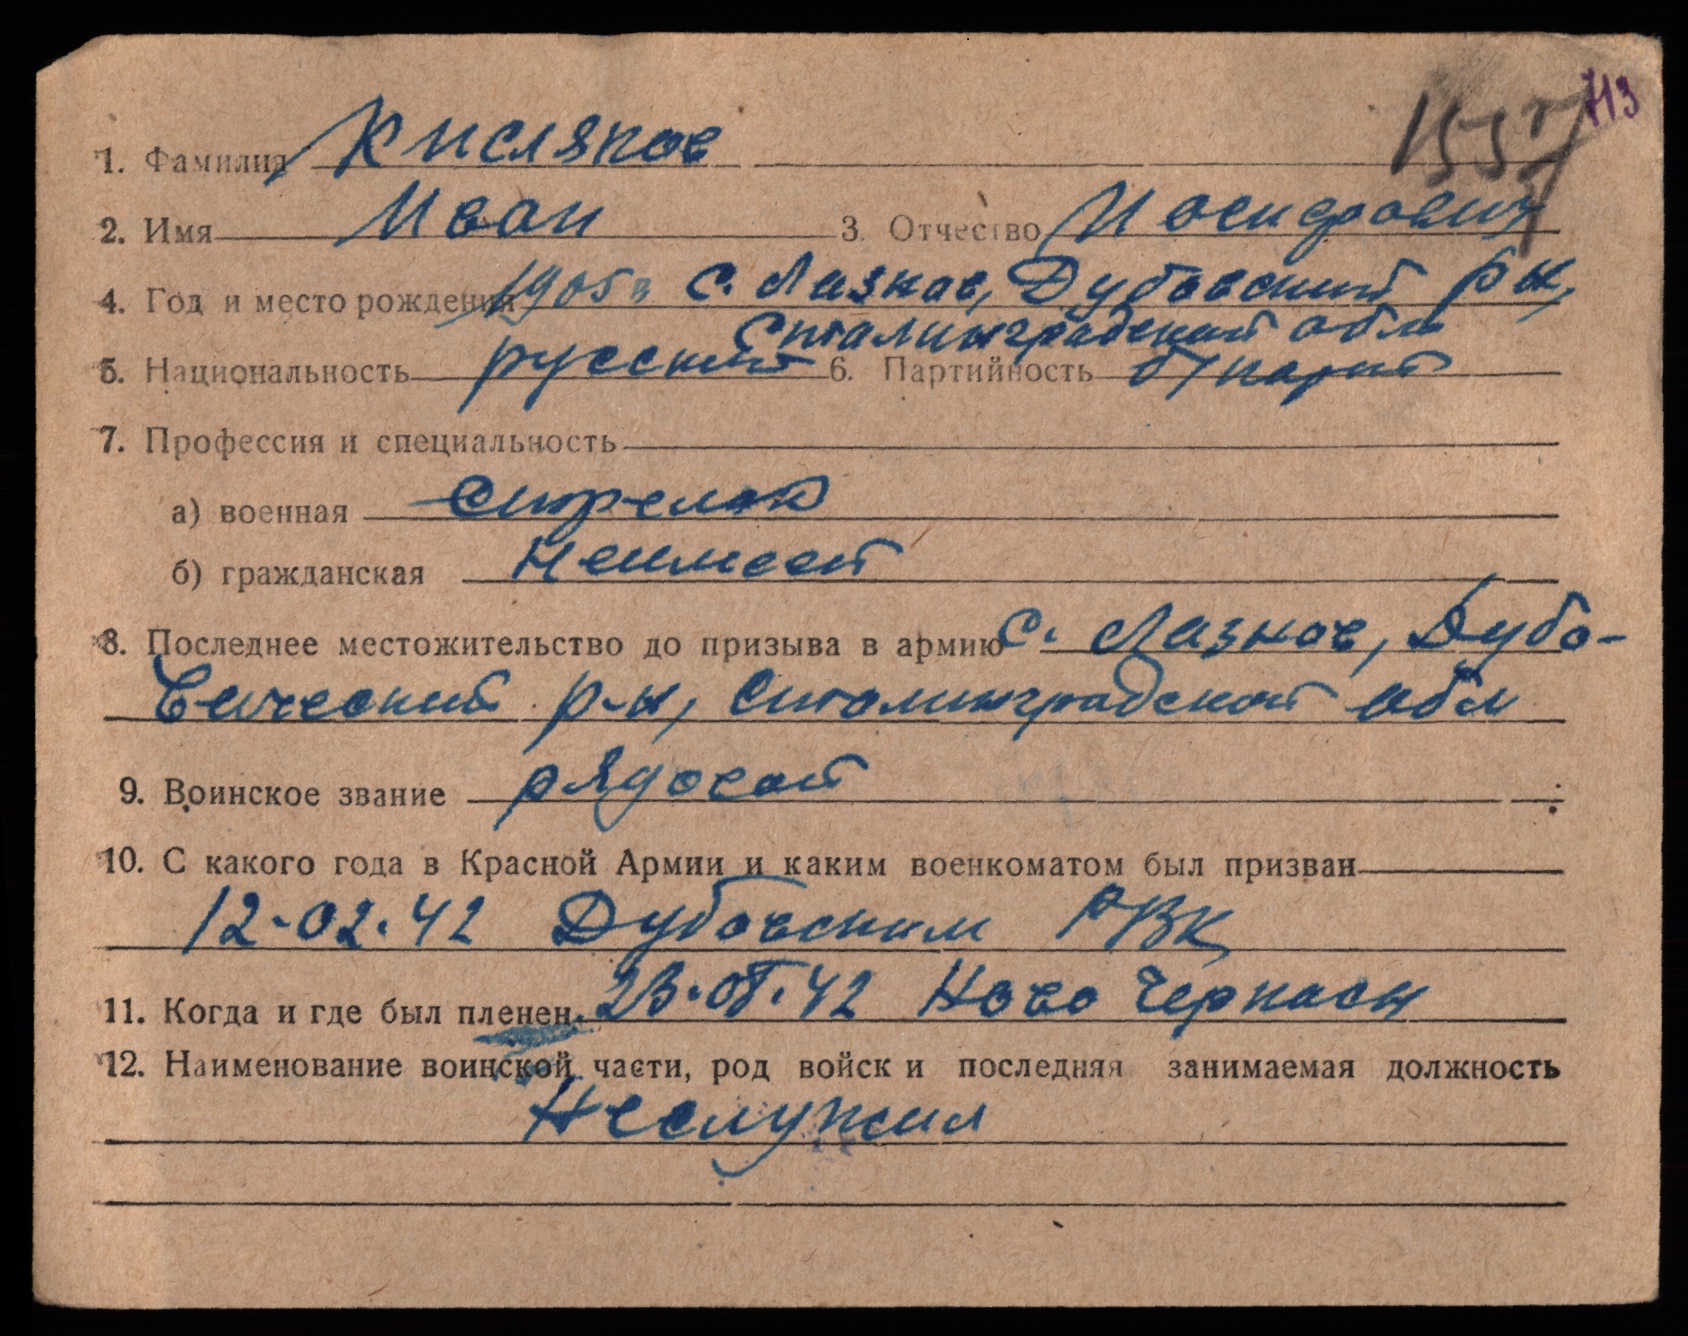 713
1. Фамилия Кисляков
2. Имя Иван 3. Отчество Иосифович
4. Год и место рождения 1905 г. с. Лазнов, Дубовский р-н,
Сталинградской обл
5. Национальность русский 6. Партийность б/парт
7. Профессия и специальность
а) военная стрелок
б) гражданская неимеет
8. Последнее местожительство до призыва в армию с. Лазнов, Дубо-
р-н, Сталинградской обл
9. Воинское звание рядовой
10. С какого года в Красной Армии и каким военкоматом был призван
12.02.42 Дубовским РВК
11. Когда и где был пленен 23.08.42 Ново Черкасы
12. Наименование воинской части, род войск и последняя занимаемая должность
Неслужил